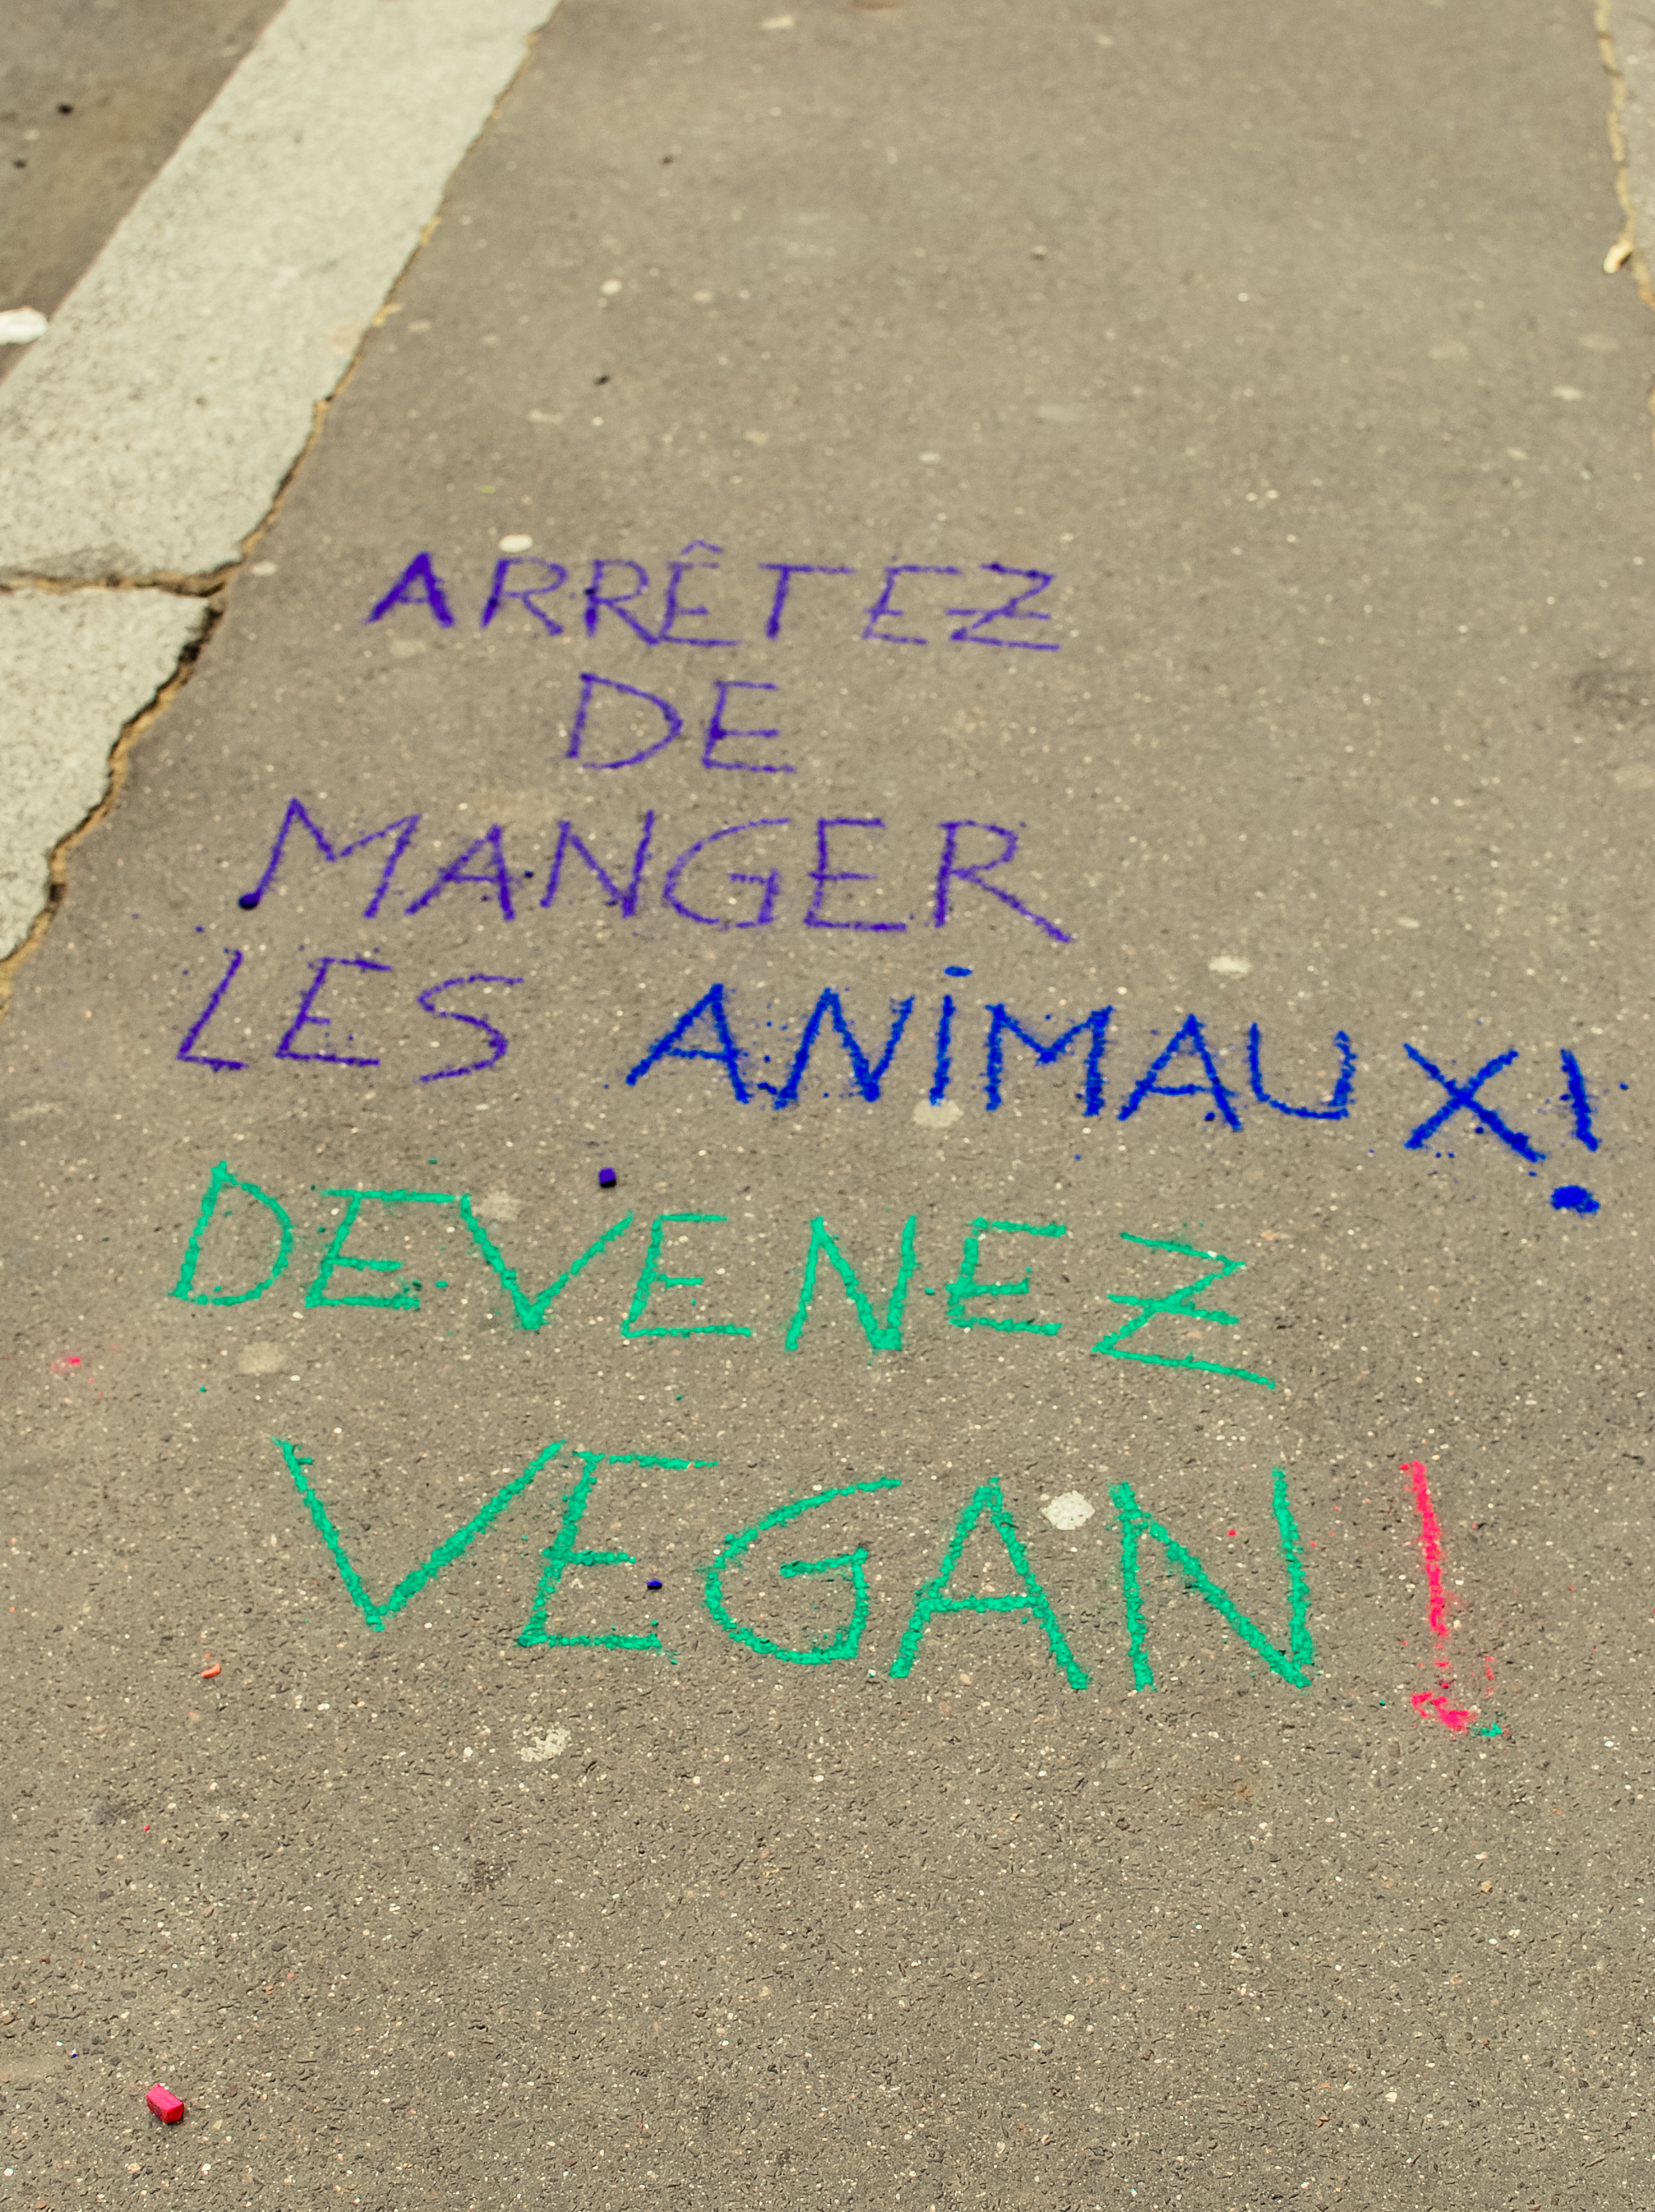 ARRÊTEZ
DE
MANGER
LES ANIMAUX!
DEVENEZ
VEGAN!